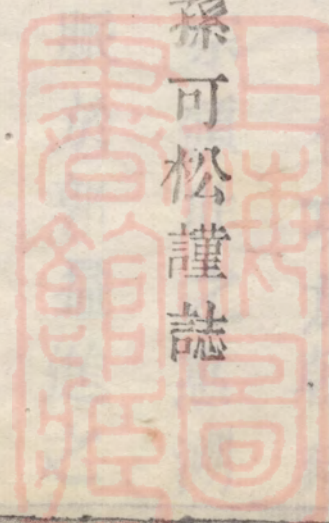 孫可松謹誌
上海圖
書館藏